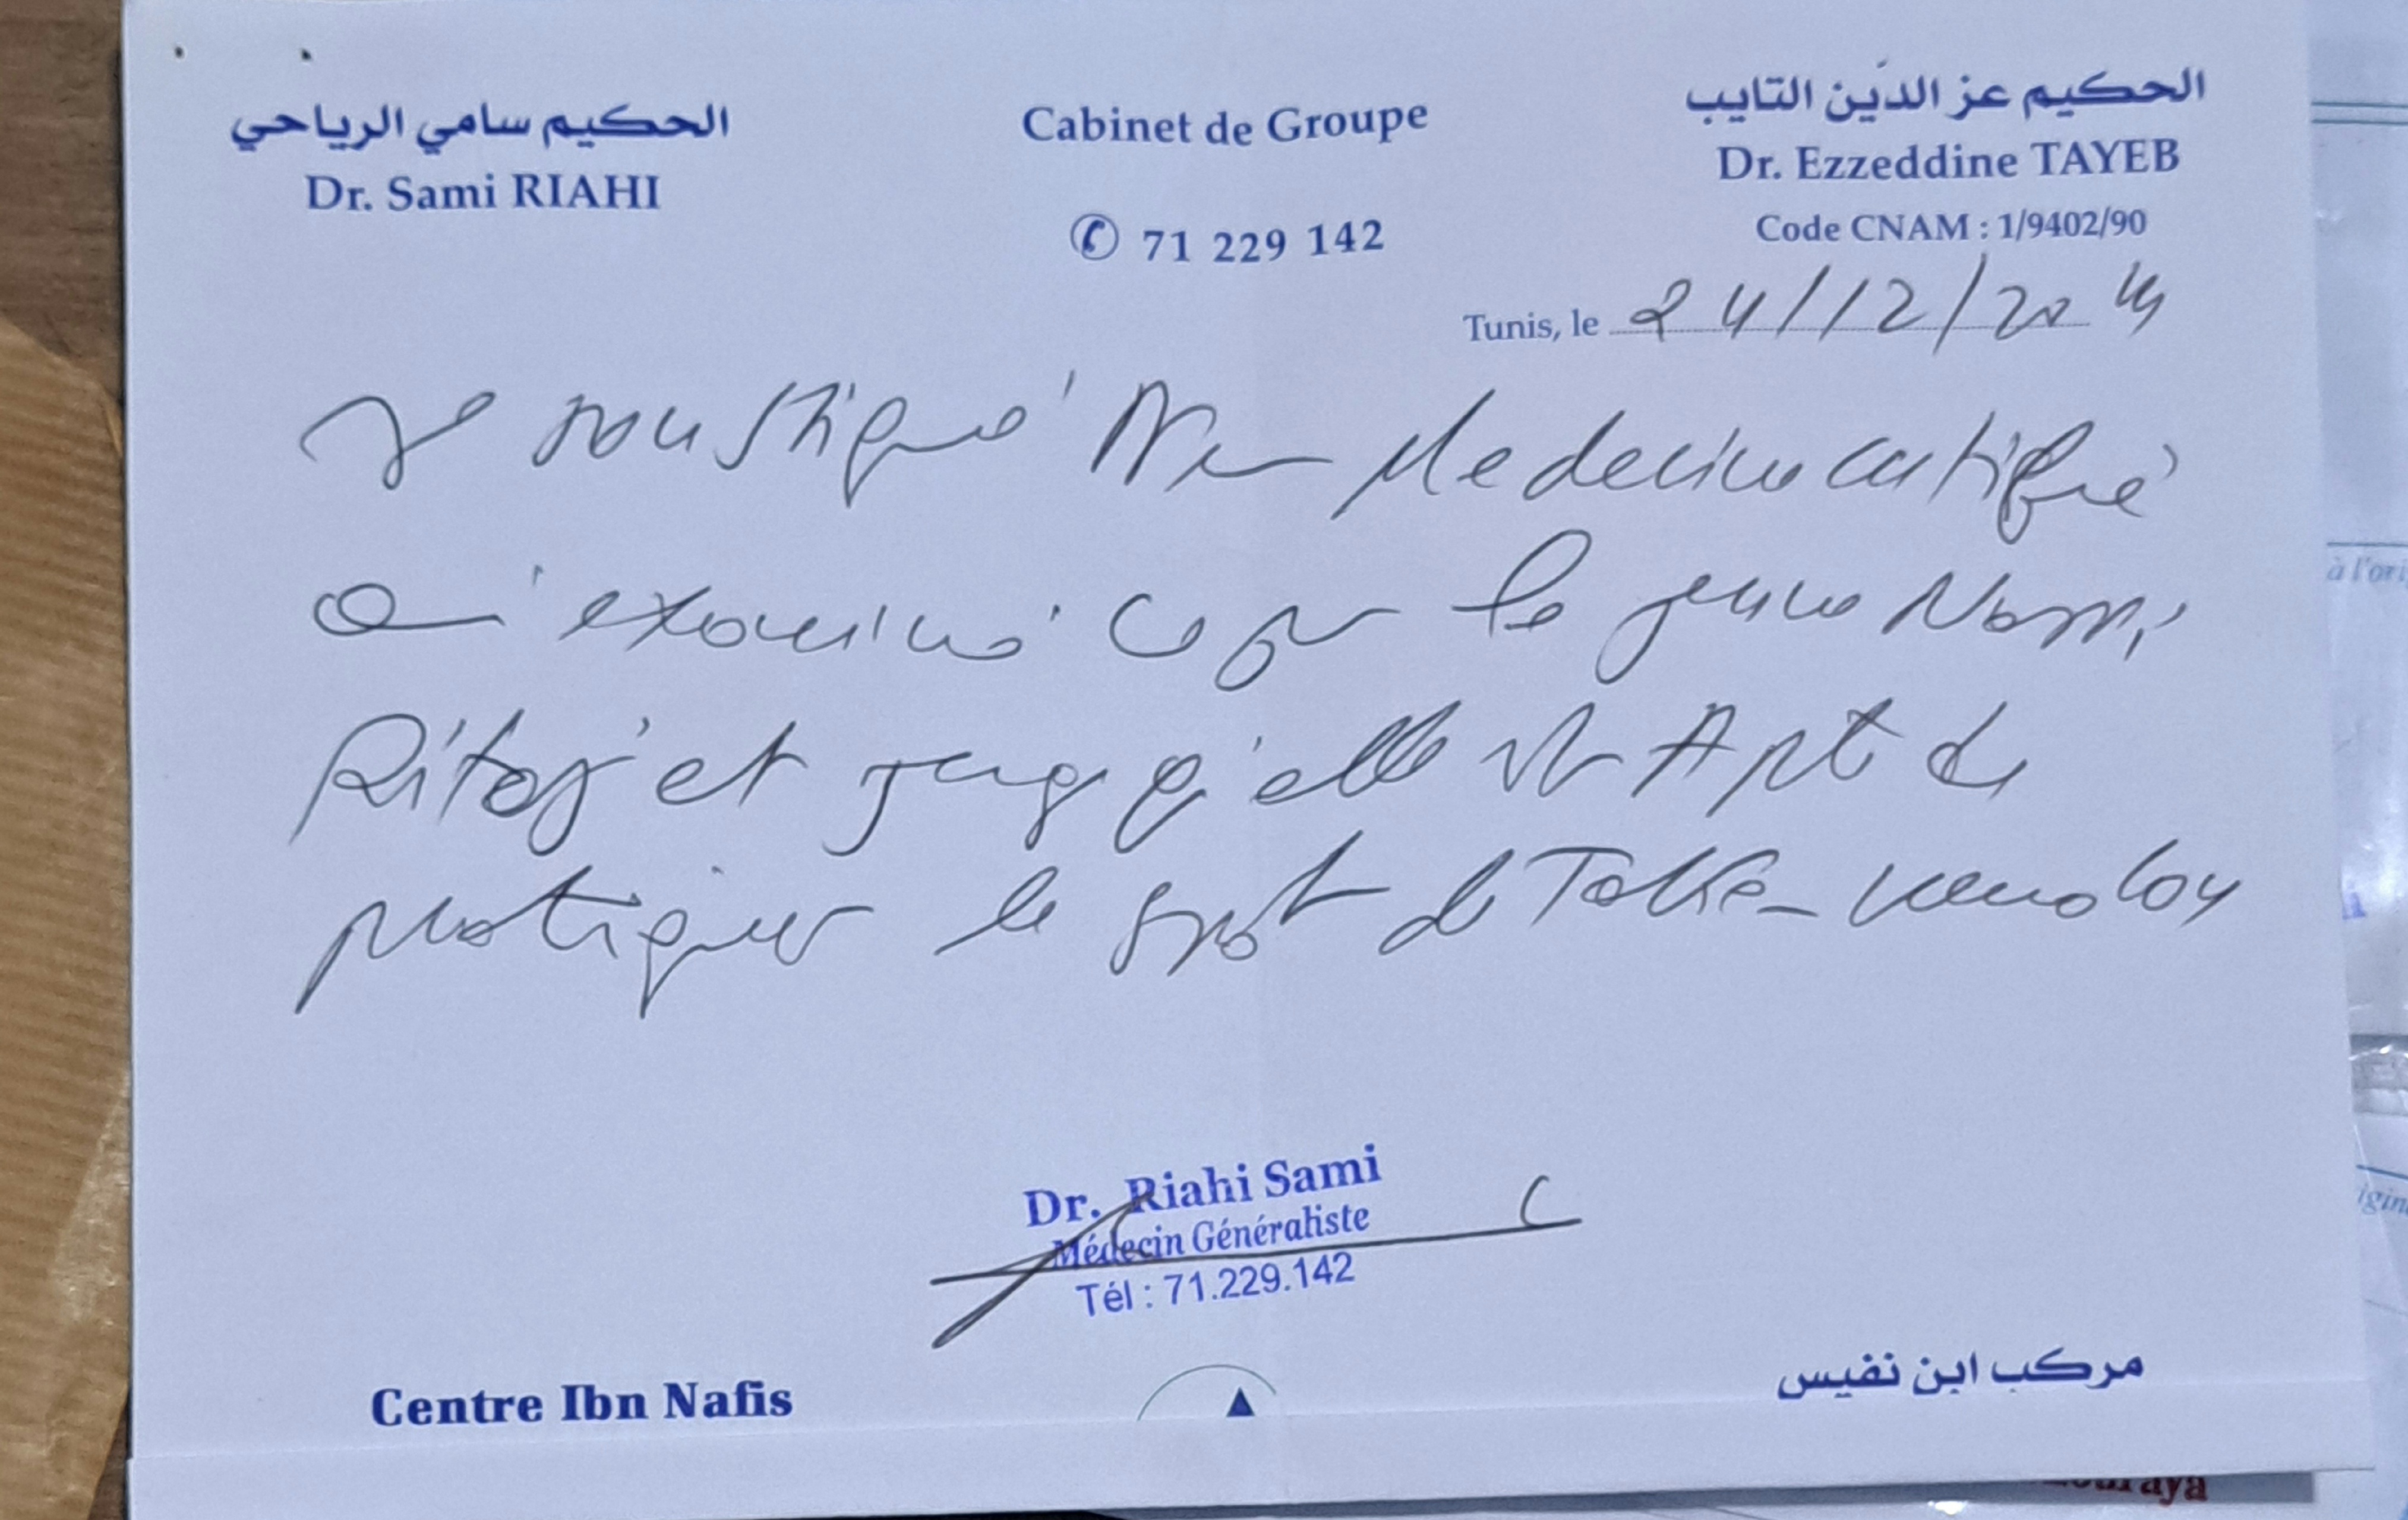 الحكيم سامي الرياحي
Dr. Sami RIAHI
Cabinet de Groupe
✆ 71 229 142
الحكيم عز الدين التايب
Dr. Ezzeddine TAYEB
Code CNAM : 1/9402/90
Tunis, le 24/12/20
Je soussigné Medecin certifie
examiné ce jour le jeune
Ritaj et juge qu'elle est Apt de
pratiquer le sport de
Dr. Riahi Sami
Médecin Généraliste
Tél : 71.229.142
Centre Ibn Nafis
مركب ابن نفيس
à l'ori
igin